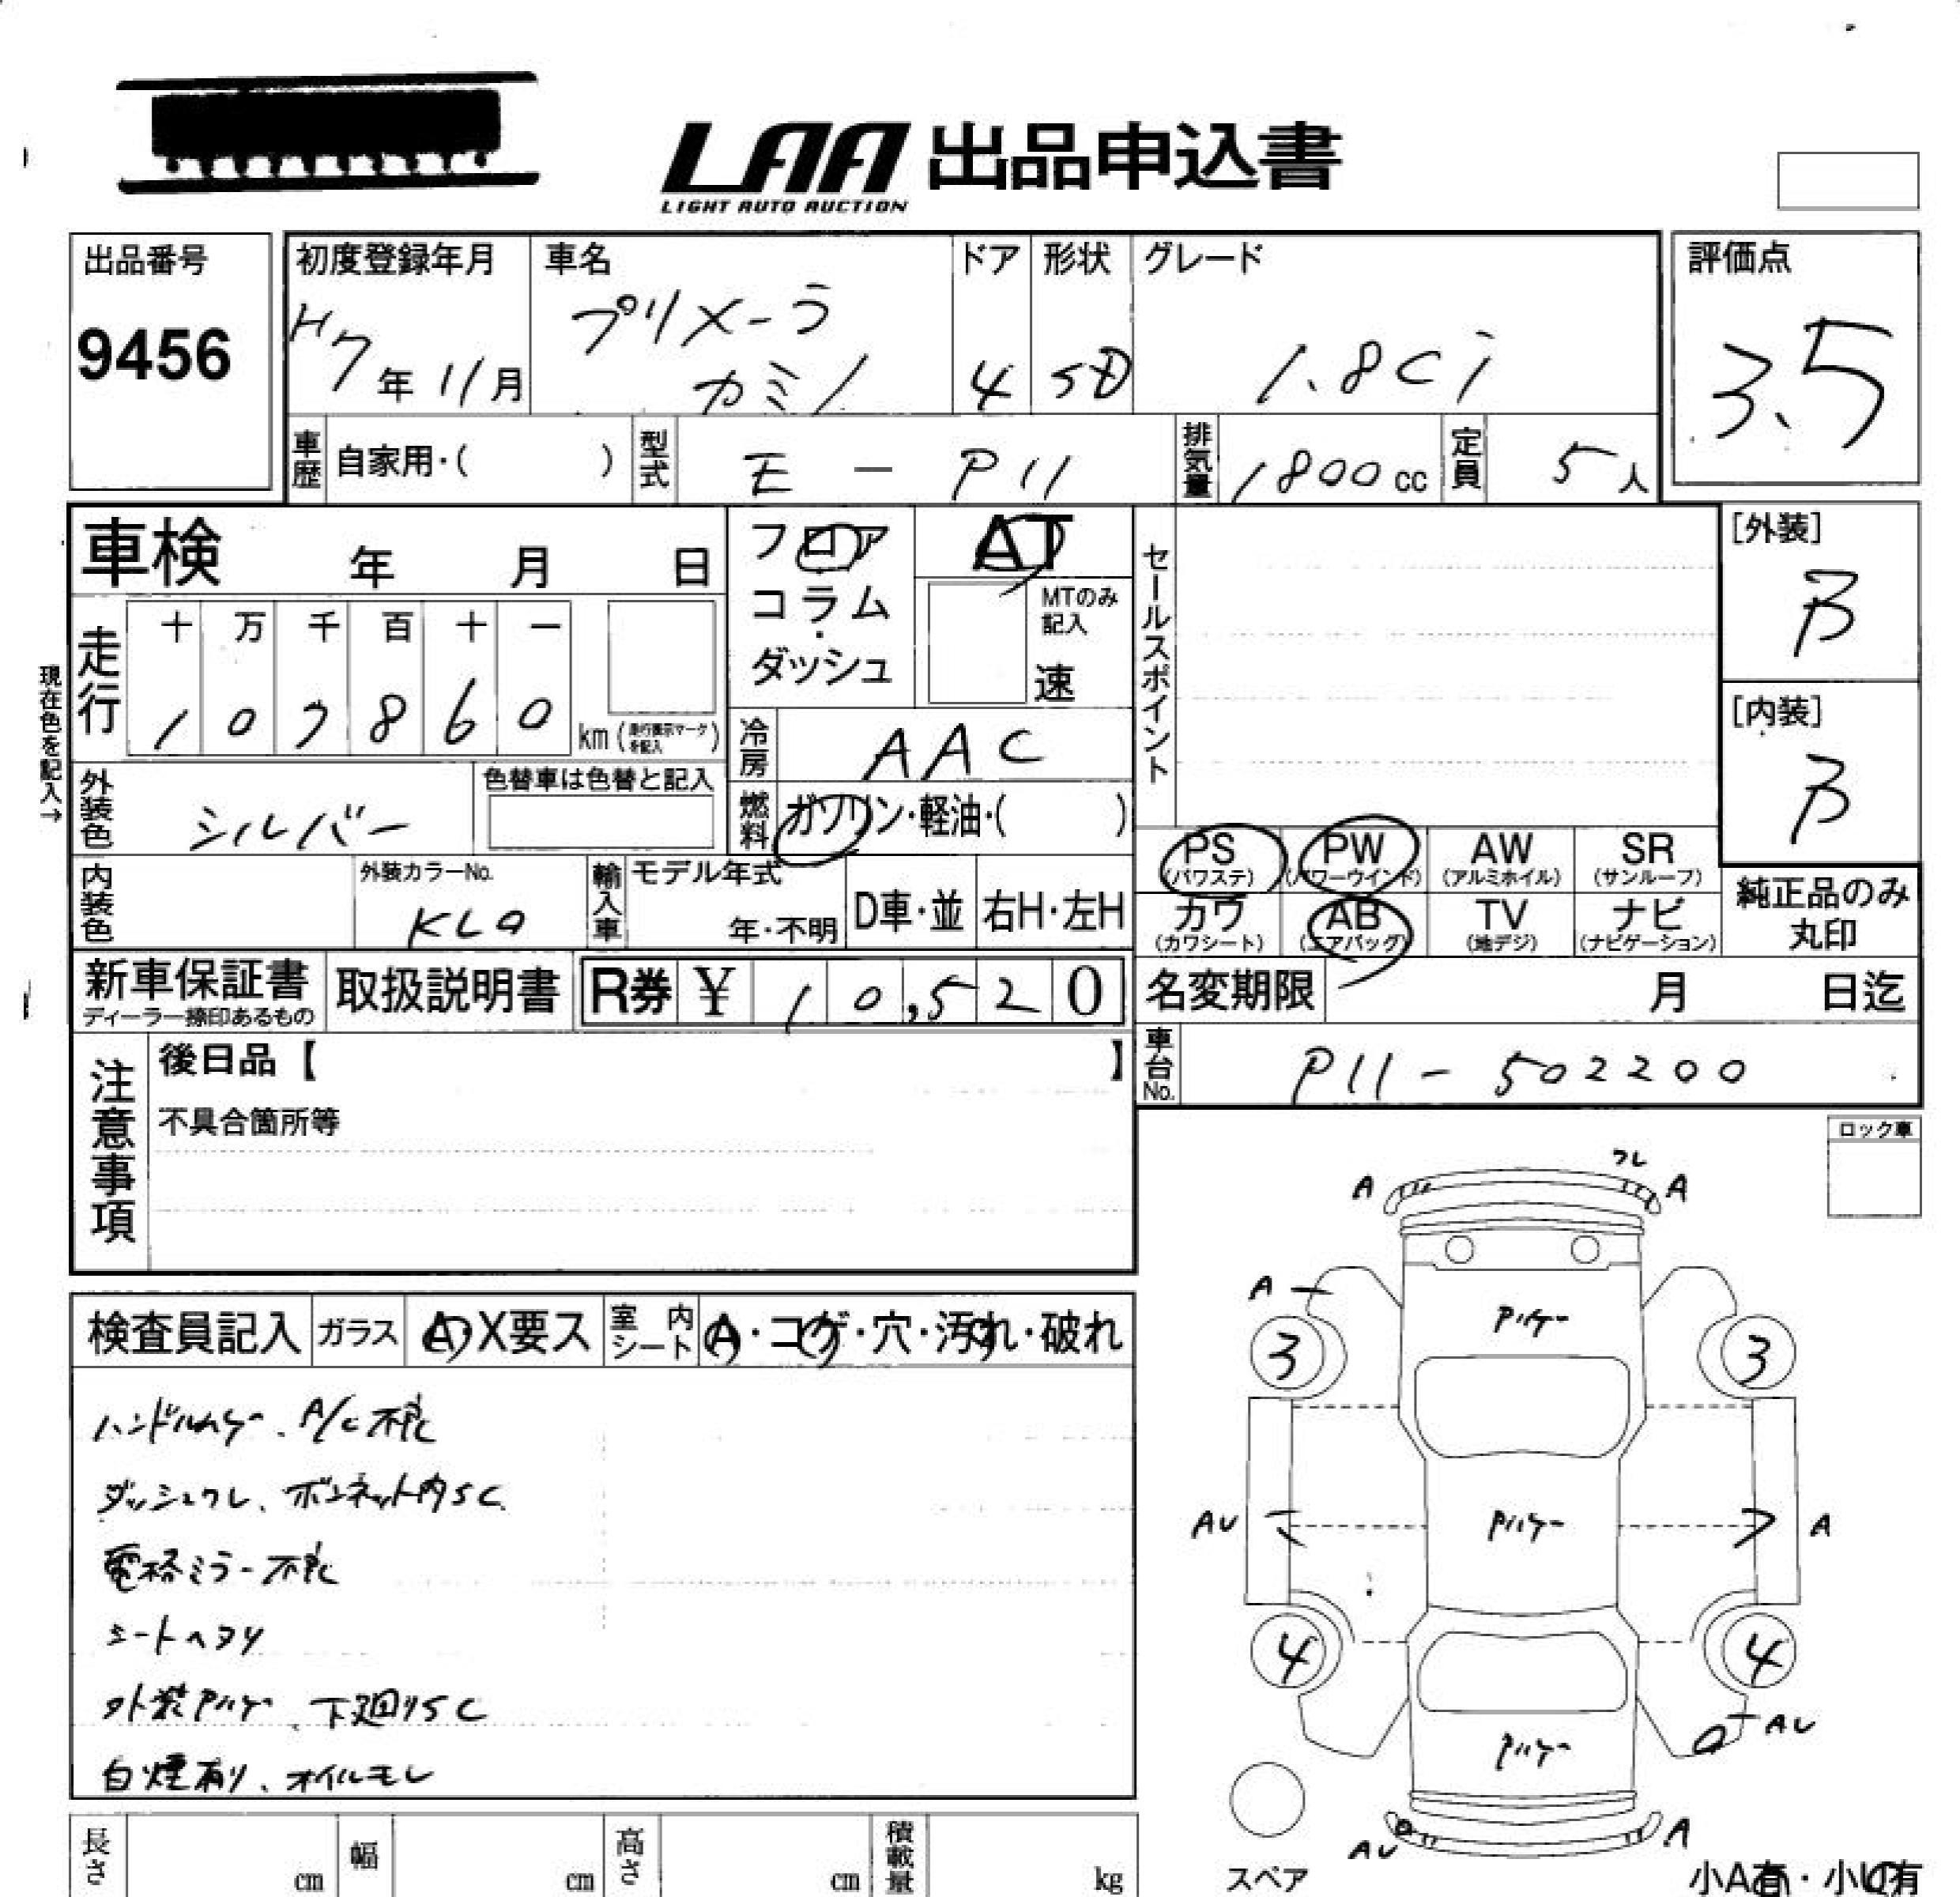 LAA 出品申込書
LIGHT AUTO AUCTION
出品番号
9456
初度登録年月
H7年11月
車名
プリメーラ
カミノ
ドア
4
形状
SD
グレード
1.8Ci
評価点
3.5
車歴 自家用・( )
型式 E-P11
排気量 1800cc
定員 5人
車検 年 月 日
フロア
コラム
・
ダッシュ
AT
MTのみ
記入
速
セールスポイント
[外装]
B
[内装]
B
現在色を記入→
走行
十 万 千 百 十 一
1 0 7 8 6 0 km (走行表示マークを記入)
冷房 AAC
外装色 シルバー
色替車は色替と記入
燃料 ガソリン・軽油・( )
内装色
外装カラーNo.
KL0
輸入車
モデル年式
年・不明
D車・並
右H・左H
PS (パワステ)
PW (パワーウインド)
AW (アルミホイル)
SR (サンルーフ)
カワ (カワシート)
AB (エアバッグ)
TV (地デジ)
ナビ (ナビゲーション)
純正品のみ
丸印
新車保証書
ディーラー捺印あるもの
取扱説明書
R券 ¥ 10,520
名変期限 月 日迄
車台No. P11-502200
注意事項
後日品【 】
不具合箇所等
ロック車
検査員記入
ガラス
A・X要ス
室内シート
A・コゲ・穴・汚れ・破れ
ハンドルハゲー、A/C不良
ダッシュワレ、ボンネット内SC
電格ミラー不良
シートヘタリ
外装Pハゲー、下廻りSC
白煙有り、オイルモレ
ワレ
A A
A
Pハゲー
3 3
AU Pハゲー A
4 4
Pハゲー
AU
AU A
スペア
小A有・小U有
長さ cm
幅 cm
高さ cm
積載量 kg